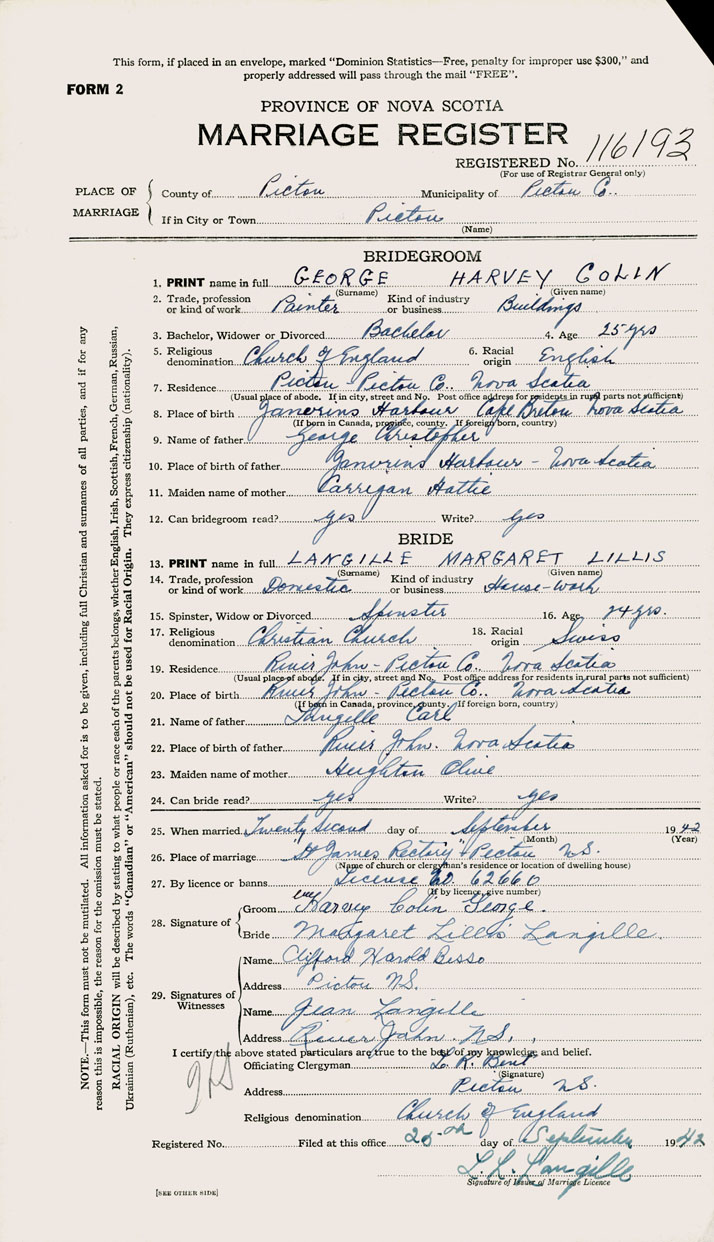 This form, if placed in an envelope, marked "Dominion Statistics—Free, penalty for improper use $300," and
properly addressed will pass through the mail "FREE".
FORM 2
PROVINCE OF NOVA SCOTIA
MARRIAGE REGISTER
REGISTERED No. 116193
(For use of Registrar General only)
PLACE OF MARRIAGE
County of Pictou Municipality of Pictou Co.
If in City or Town Pictou
(Name)
BRIDEGROOM
1. PRINT name in full GEORGE HARVEY COLIN
(Surname) (Given name)
2. Trade, profession or kind of work Painter Kind of industry or business Buildings
3. Bachelor, Widower or Divorced Bachelor 4. Age 25 yrs
5. Religious denomination Church of England 6. Racial origin English
7. Residence Pictou - Pictou Co. Nova Scotia
(Usual place of abode. If in city, street and No. Post office address for residents in rural parts not sufficient)
8. Place of birth Janvrins Harbour Cape Breton Nova Scotia
(If born in Canada, province, county. If foreign born, country)
9. Name of father George Christopher
10. Place of birth of father Janvrins Harbour - Nova Scotia
11. Maiden name of mother Carrigan Hattie
12. Can bridegroom read? yes Write? yes
BRIDE
13. PRINT name in full LANGILLE MARGARET LILLIS
(Surname) (Given name)
14. Trade, profession or kind of work Domestic Kind of industry or business House-work
15. Spinster, Widow or Divorced Spinster 16. Age 24 yrs.
17. Religious denomination Christian Church 18. Racial origin Swiss
19. Residence River John - Pictou Co. Nova Scotia
(Usual place of abode. If in city, street and No. Post office address for residents in rural parts not sufficient)
20. Place of birth River John - Pictou Co. Nova Scotia
(If born in Canada, province, county. If foreign born, country)
21. Name of father Langille Carl
22. Place of birth of father River John. Nova Scotia
23. Maiden name of mother Heighton Olive
24. Can bride read? yes Write? yes
25. When married Twenty Second day of September 1942
(Month) (Year)
26. Place of marriage "St James Rectory" Pictou N.S.
(Name of church or clergyman's residence or location of dwelling house)
27. By licence or banns License No. 62660
(If by licence, give number)
28. Signature of
Groom Harvey Colin George.
Bride Margaret Lillis Langille.
29. Signatures of Witnesses
Name Clifford Harold Besso
Address Pictou N.S.
Name Jean Langille
Address River John. N.S.
I certify the above stated particulars are true to the best of my knowledge and belief.
Officiating Clergyman L. R. Bent
(Signature)
Address Pictou N.S.
Religious denomination Church of England
Registered No. Filed at this office 25th day of September 1942
L. L. Langille
Signature of Issuer of Marriage Licence
[SEE OTHER SIDE]
NOTE.—This form must not be mutilated. All information asked for is to be given, including full Christian and surnames of all parties, and if for any
reason this is impossible, the reason for the omission must be stated.
RACIAL ORIGIN will be described by stating to what people or race each of the parents belongs, whether English, Irish, Scottish, French, German, Russian,
Ukrainian (Ruthenian), etc. The words "Canadian" or "American" should not be used for Racial Origin. They express citizenship (nationality).